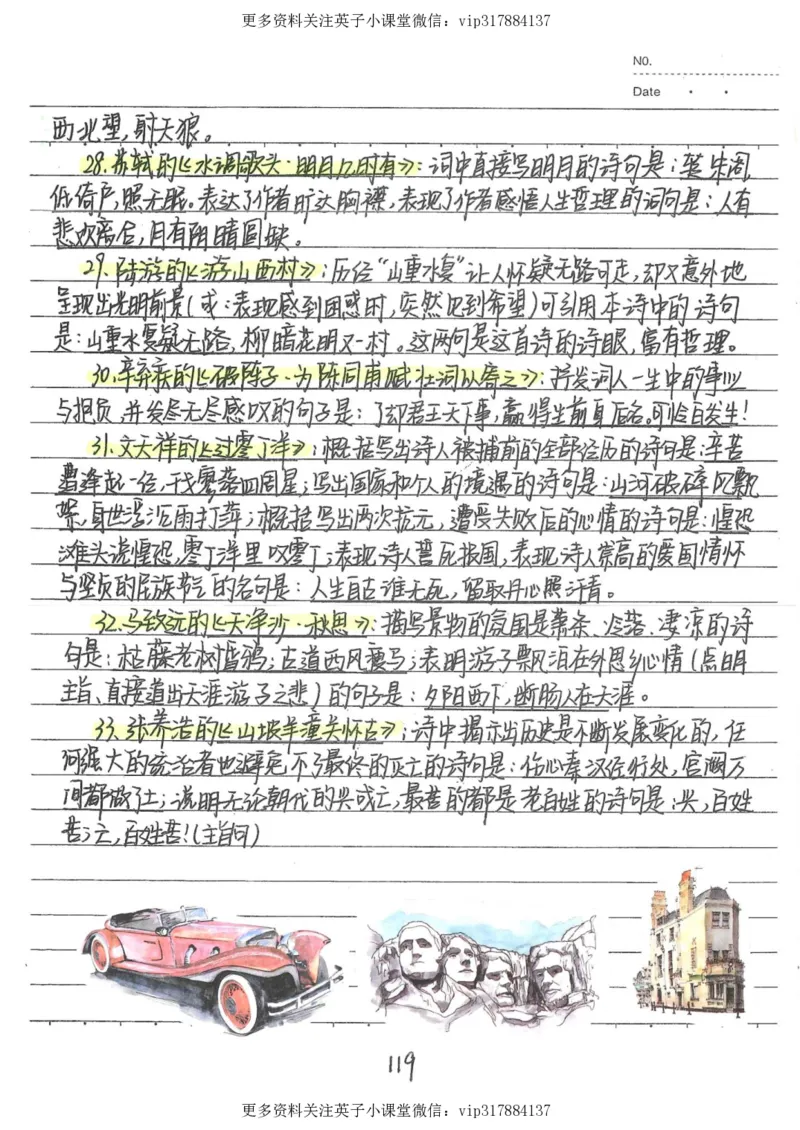 更多资料关注英子小课堂微信：vip317884137
NO.
Date
西北望，射天狼。
28.苏轼的《水调歌头·明月几时有》：词中直接写明月的诗句是：转朱阁
低倚户，照无眠。表达了作者旷达胸襟，表现了作者感悟人生哲理的词句是：人有
悲欢离合，月有阴晴圆缺。
29.陆游的《游山西村》：历经“山重水复”让人怀疑无路可走，却又意外地
呈现出光明前景（或：表现感到困惑时，突然见到希望）可引用本诗中的诗句
是：山重水复疑无路，柳暗花明又一村。这两句是这首诗的诗眼，富有哲理。
30.辛弃疾的《破阵子·为陈同甫赋壮词以寄之》：抒发词人一生中的事业
与抱负，并发尽无尽感叹的句子是：了却君王天下事，赢得生前身后名。可怜白发生！
31.文天祥的《过零丁洋》：概括写出诗人被捕前的全部经历的诗句是：辛苦
遭逢起一经，干戈寥落四周星；写出国家和个人的境遇的诗句是：山河破碎风飘
絮，身世浮沉雨打萍；概括写出两次抗元，遭受失败后的心情的诗句是：惶恐
滩头说惶恐，零丁洋里叹零丁；表现诗人誓死报国，表现诗人崇高的爱国情怀
与坚贞的民族节气的名句是：人生自古谁无死，留取丹心照汗青。
32.马致远的《天净沙·秋思》：描写景物的氛围是萧杀、冷落、凄凉的诗
句是：枯藤老树昏鸦；古道西风瘦马；表明游子飘泊在外思乡心情（点明
主旨、直接道出天涯游子之悲）的句子是：夕阳西下，断肠人在天涯。
33.张养浩的《山坡羊·潼关怀古》；诗中揭示出历史是不断发展变化的，任
何强大的统治者也避免不了最终的灭亡的诗句是：伤心秦汉经行处，宫阙万
间都做了土；说明无论朝代的兴或亡，最苦的都是老百姓的诗句是：兴，百姓
苦；亡，百姓苦！（主旨句）
119
更多资料关注英子小课堂微信：vip317884137